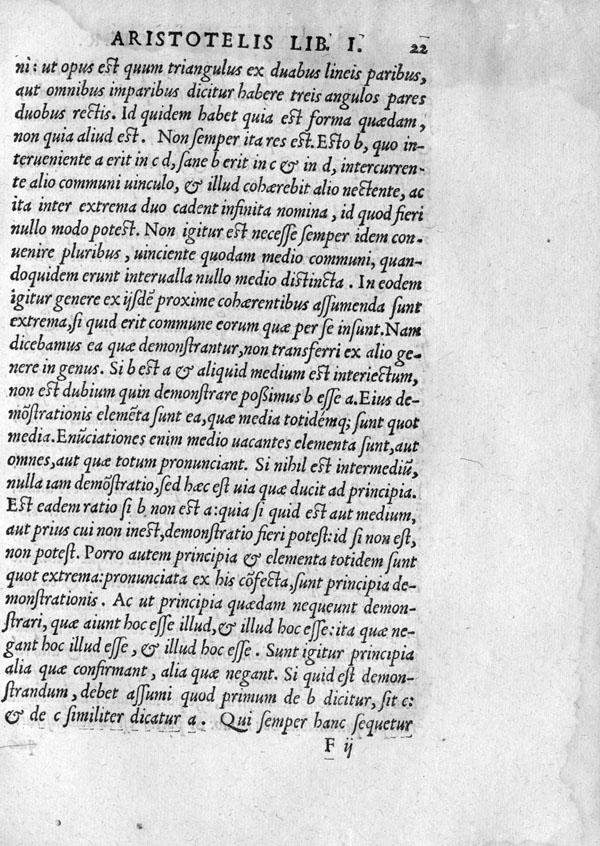 ARISTOTELIS LIB. I. 22
ni: ut opus est quum triangulus ex duabus lineis paribus,
aut omnibus imparibus dicitur habere treis angulos pares
duobus rectis. Id quidem habet quia est forma quædam,
non quia aliud est. Non semper ita res est. Esto b, quo in-
terueniente a erit in c d, sane b erit in c & in d, intercurren-
te alio communi uinculo, & illud cohærebit alio nectente, ac
ita inter extrema duo cadent infinita nomina, id quod fieri
nullo modo potest. Non igitur est necesse semper idem con-
uenire pluribus, uinciente quodam medio communi, quan-
doquidem erunt interualla nullo medio distincta. In eodem
igitur genere ex ijsdẽ proxime cohærentibus assumenda sunt
extrema, si quid erit commune eorum quæ per se insunt. Nam
dicebamus ea quæ demonstrantur, non transferri ex alio ge-
nere in genus. Si b est a & aliquid medium est interiectum,
non est dubium quin demonstrare possimus b esse a. Eius de-
mõstrationis elemẽta sunt ea, quæ media totidemq; sunt quot
media. Enũciationes enim medio uacantes elementa sunt, aut
omnes, aut quæ totum pronunciant. Si nihil est intermediũ,
nulla iam demõstratio, sed hæc est uia quæ ducit ad principia.
Est eadem ratio si b non est a: quia si quid est aut medium,
aut prius cui non inest, demonstratio fieri potest: id si non est,
non potest. Porro autem principia & elementa totidem sunt
quot extrema: pronunciata ex his cõfecta, sunt principia de-
monstrationis. Ac ut principia quædam nequeunt demon-
strari, quæ aiunt hoc esse illud, & illud hoc esse: ita quæ ne-
gant hoc illud esse, & illud hoc esse. Sunt igitur principia
alia quæ confirmant, alia quæ negant. Si quid est demon-
strandum, debet assumi quod primum de b dicitur, sit c:
& de c similiter dicatur a. Qui semper hanc sequetur
F ij